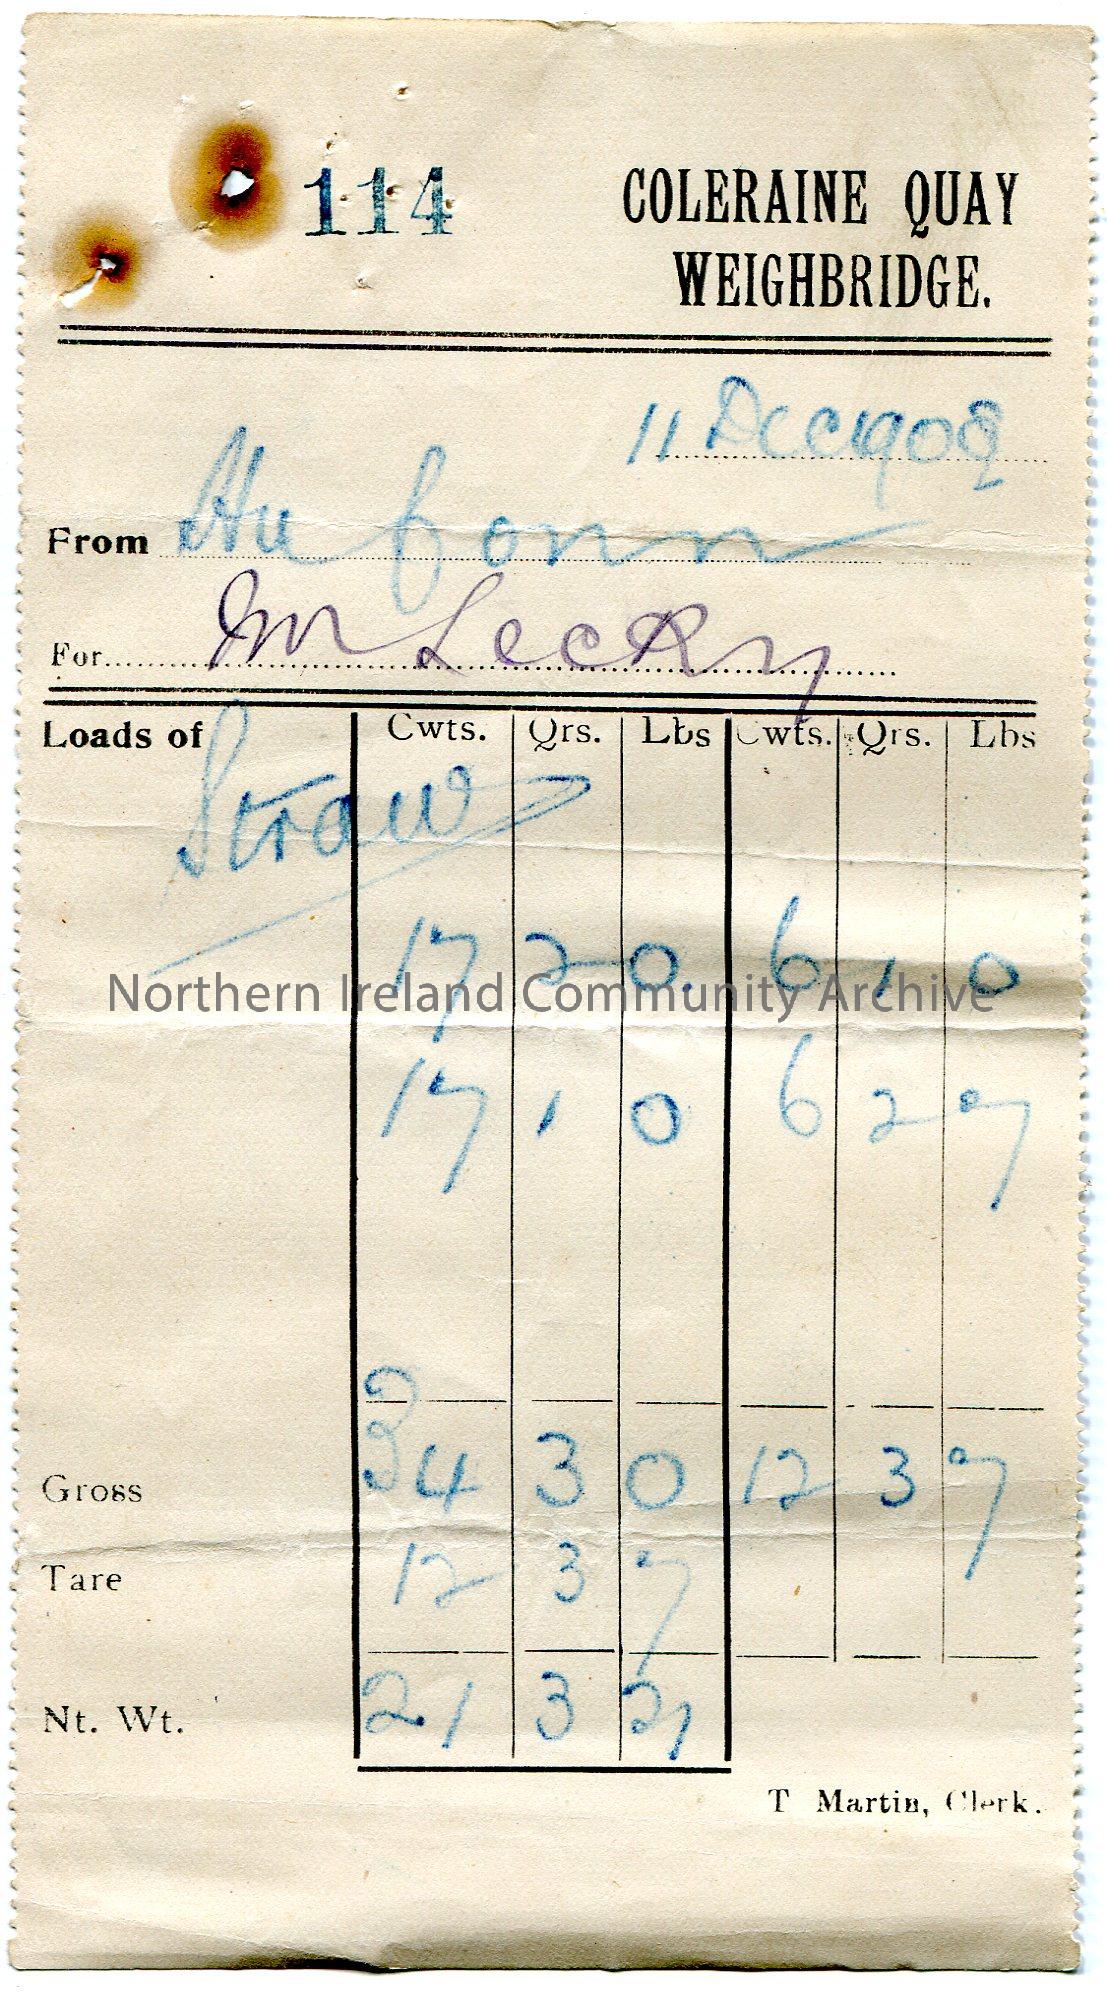 114 COLERAINE QUAY
WEIGHBRIDGE.
11 Dec 1908
From
For Mr Lecky
Loads of Cwts. Qrs. Lbs Cwts. Qrs. Lbs
Straw
17 2 0 6 1 0
Northern Ireland Community Archive
17 1 0 6 2 7
Gross 34 3 0 12 3 7
Tare 12 3 7
Nt. Wt. 21 3 21
T Martin, Clerk.